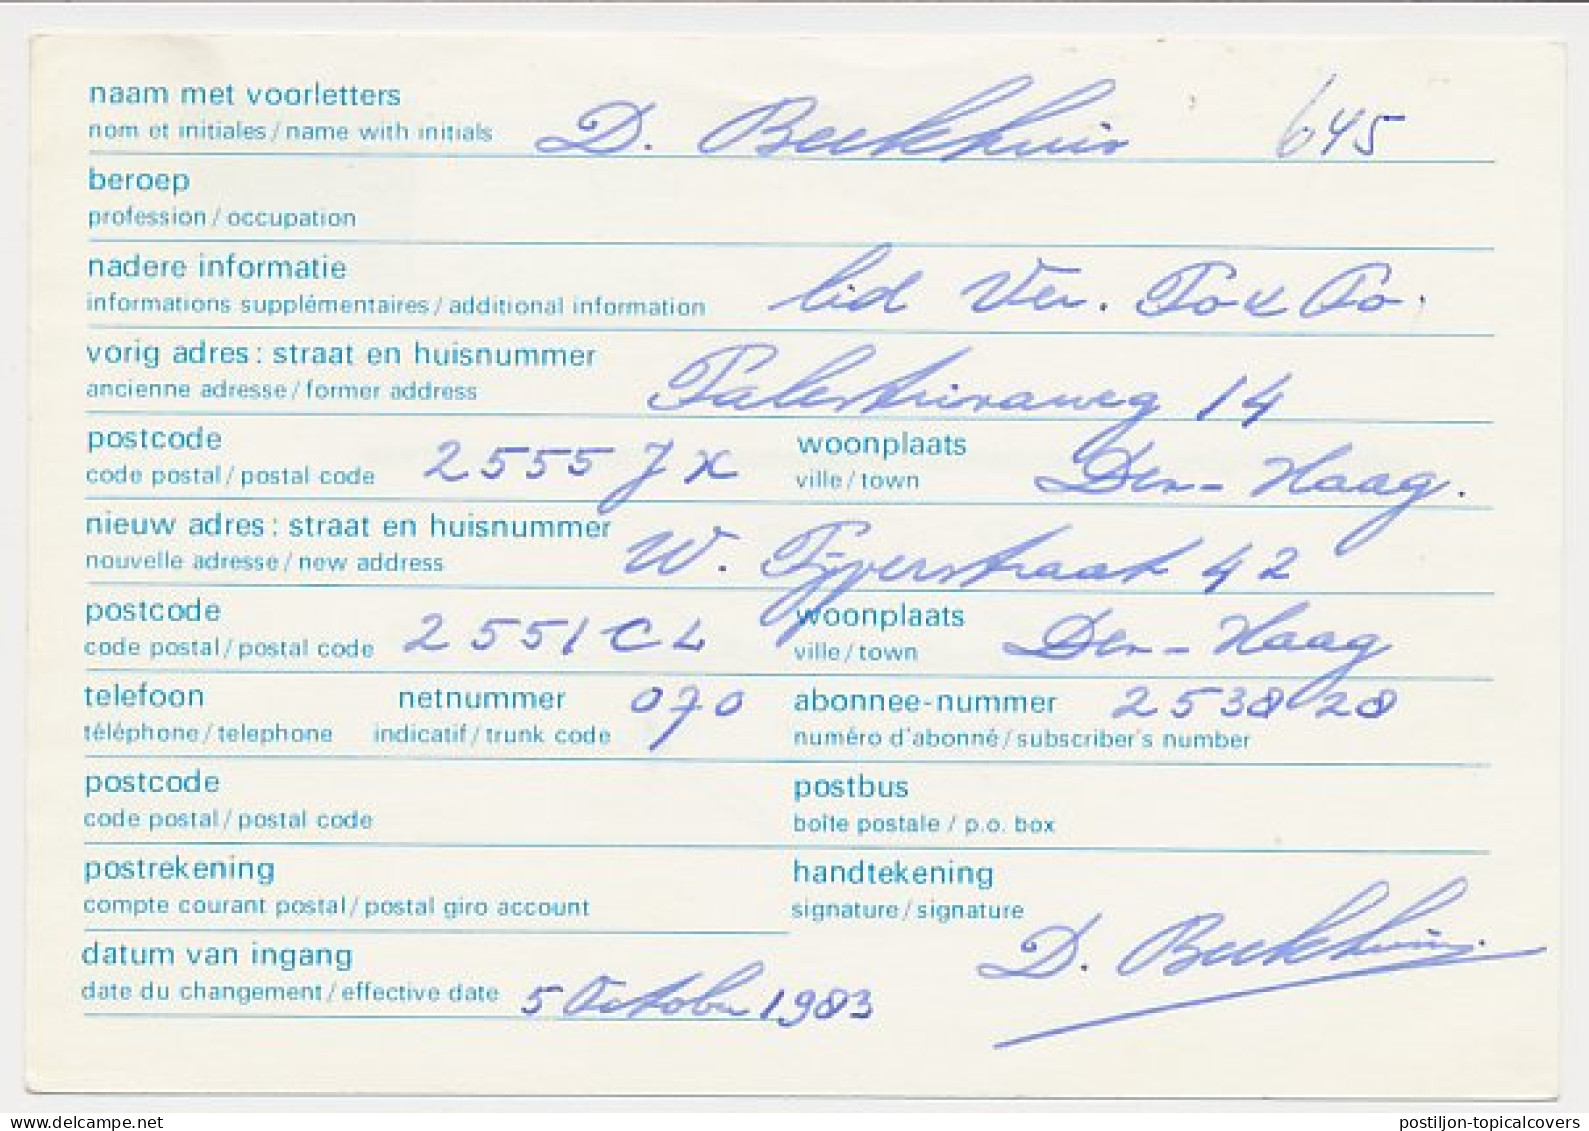 naam met voorletters
nom et initiales / name with initials D. Beekhuis 645
beroep
profession / occupation
nadere informatie
informations supplémentaires / additional information lid Ver. Po & Po.
vorig adres: straat en huisnummer
ancienne adresse / former address 14
postcode 2555 JX woonplaats Den-Haag.
code postal / postal code ville / town
nieuw adres: straat en huisnummer
nouvelle adresse / new address W. Pijperstraat 42
postcode 2551 CL woonplaats Den-Haag
code postal / postal code ville / town
telefoon netnummer 070 abonnee-nummer 253828
téléphone / telephone indicatif / trunk code numéro d'abonné / subscriber's number
postcode postbus
code postal / postal code boîte postale / p.o. box
postrekening handtekening
compte courant postal / postal giro account signature / signature
D. Beekhuis
datum van ingang
date du changement / effective date 5 October 1983
delcampe.net
postiljon-topicalcovers